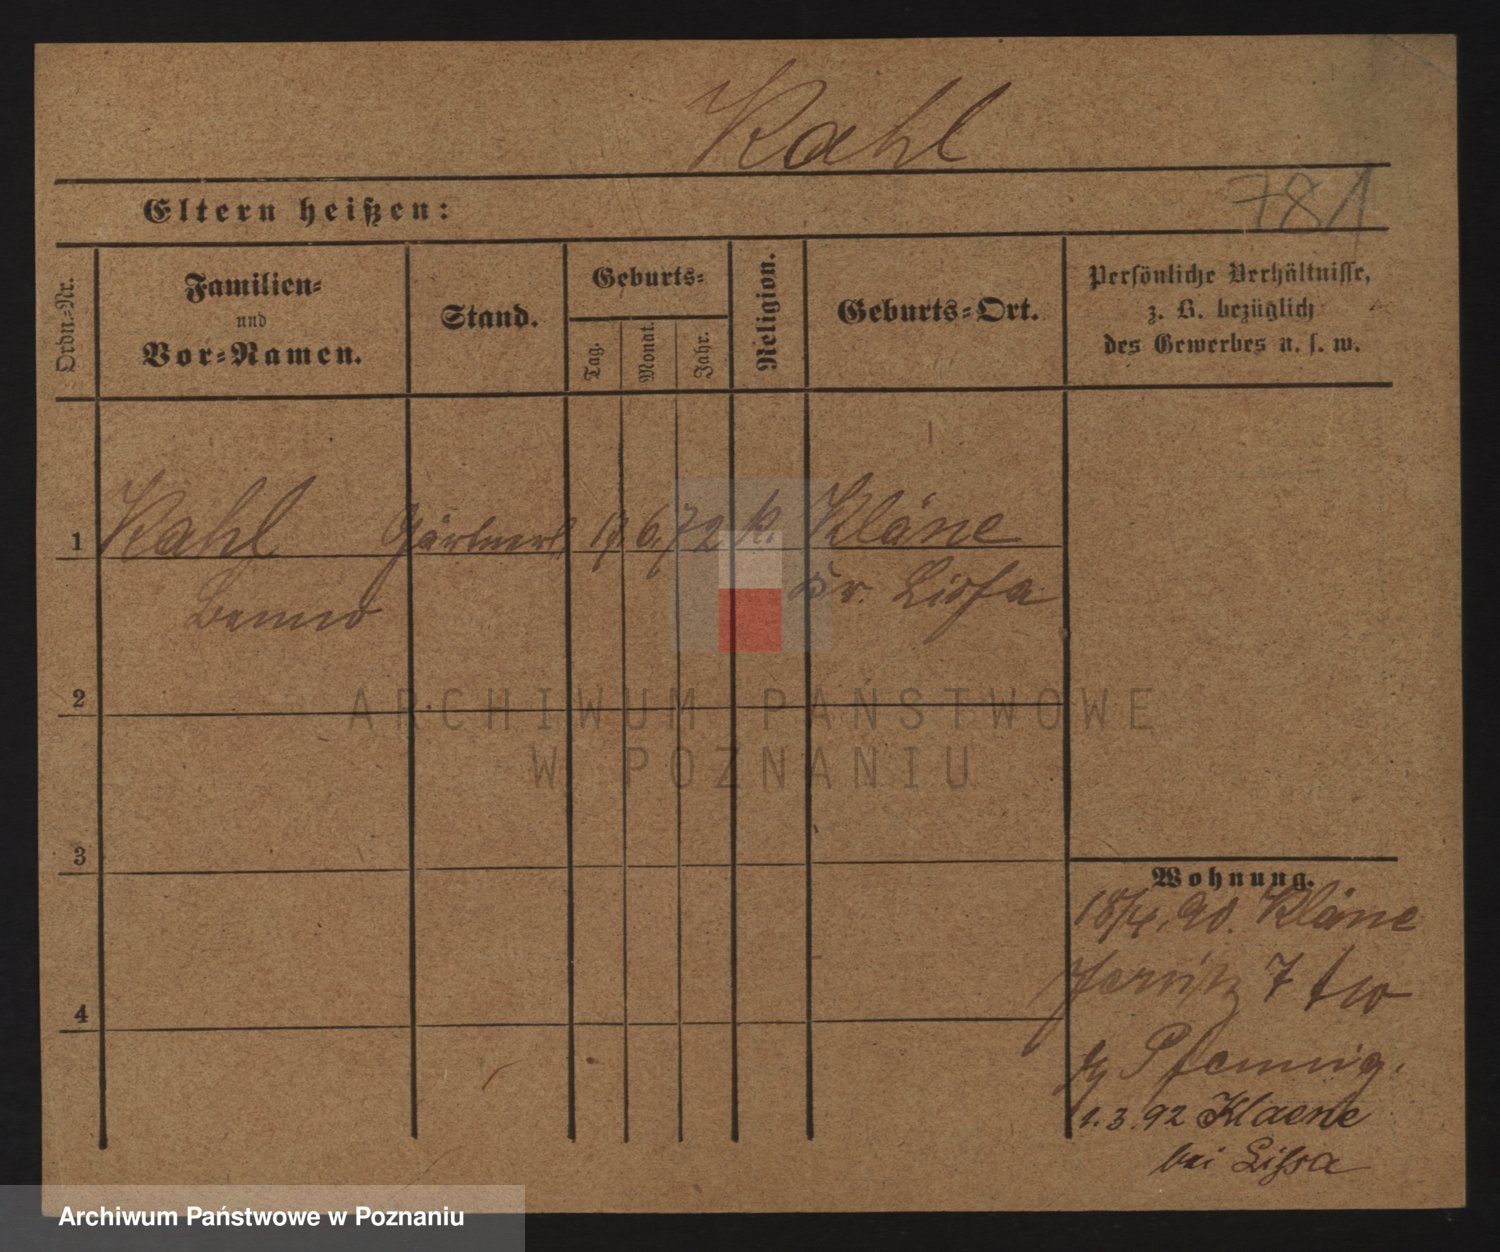 Kahl
Eltern heißen:
781
Ordn.-Nr.
Familien-
und
Vor-Namen.
Stand.
Geburts-
Tag.
Monat.
Jahr.
Religion.
Geburts-Ort.
Persönliche Verhältnisse,
z. B. bezüglich
des Gewerbes u. s. w.
1 Kahl Gärtnerl. 17. 6. 72 k. Kläne
Benno Kr. Lissa
2
3
4
Wohnung.
18/4. 90. Kläne
Jersitz 7
bg Pfennig.
1. 3. 92 Klaene
bei Lissa
ARCHIWUM PAŃSTWOWE
W POZNANIU
Archiwum Państwowe w Poznaniu